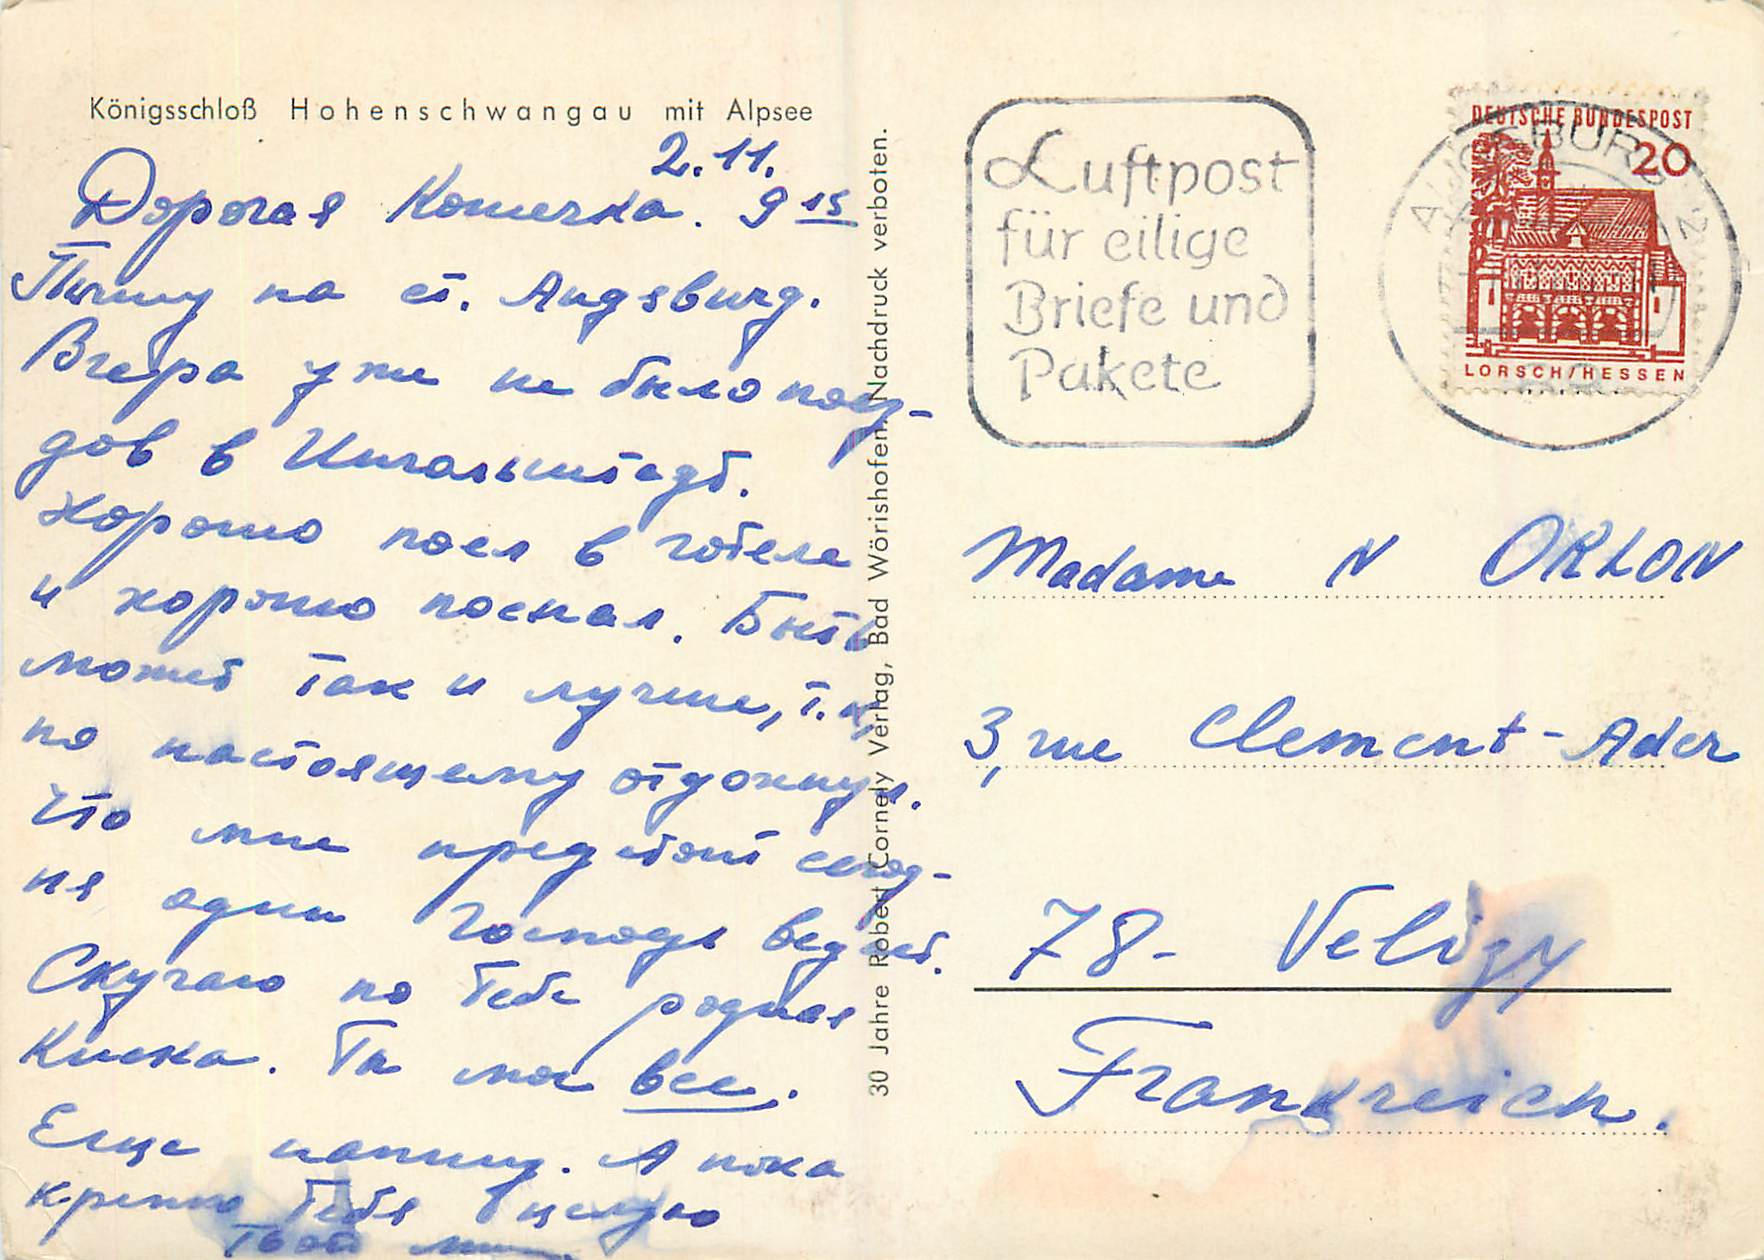 Königsschloß Hohenschwangau mit Alpsee
2.11.
Дорогая Кошечка. 9 15
Пишу на ст. Augsburg.
Вчера уже не было поез-
дов в Ингольштадт.
Хорошо поел в готеле
и хорошо поспал. Быть
может так и лучше, т.к.
по настоящему отдохнул.
Что мне предстоит сегод-
ня один Господь ведает.
Скучаю по Тебе родная
Киска. Ты мое все.
Еще напишу. А пока
крепко Тебя целую
Твой
30 Jahre Robert Cornely Verlag, Bad Wörishofen. Nachdruck verboten.
Luftpost
für eilige
Briefe und
Pakete
DEUTSCHE BUNDESPOST
20
LORSCH/HESSEN
AUGSBURG 2
Madame N ORLON
3, rue Clement-Ader
78- Velizy
Frankreich.